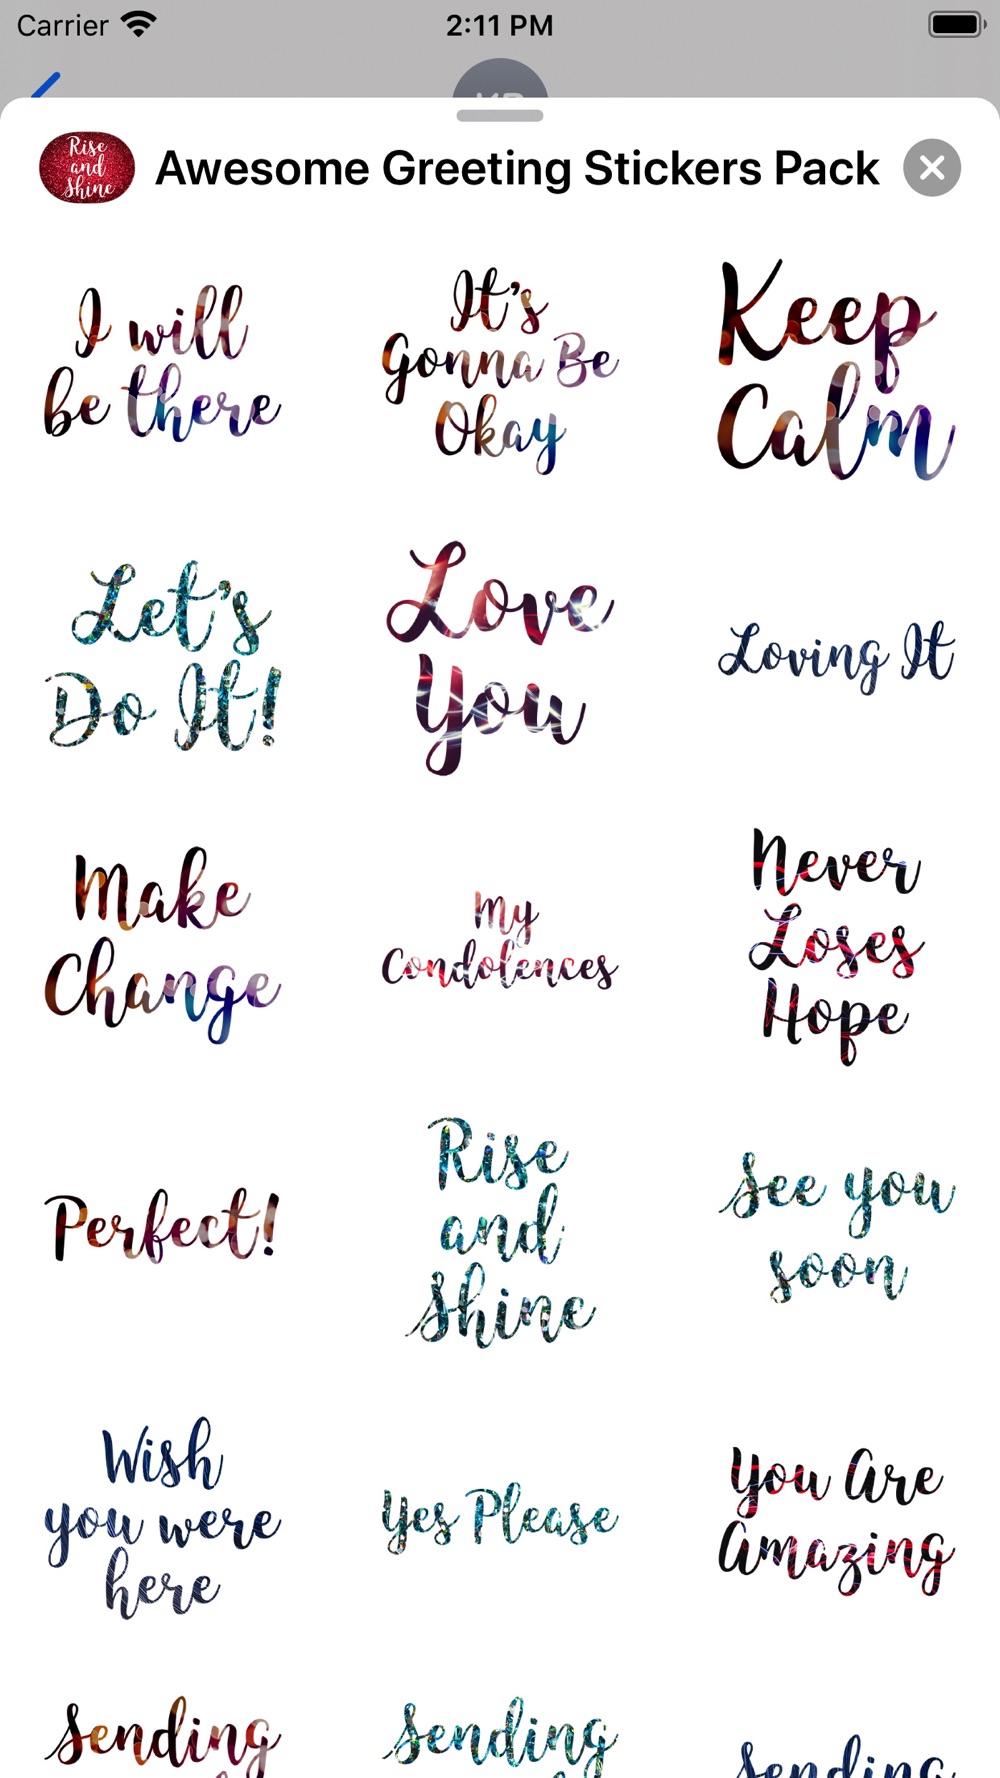 Carrier
2:11 PM
Rise
and
Shine
Awesome Greeting Stickers Pack
I will
be there
It's
Gonna Be
Okay
Keep
Calm
Let's
Do It!
Love
You
Loving It
Make
Change
My
Condolences
Never
Loses
Hope
Perfect!
Rise
and
Shine
See you
soon
Wish
you were
here
Yes Please
You Are
Amazing
Sending
Sending
Sending